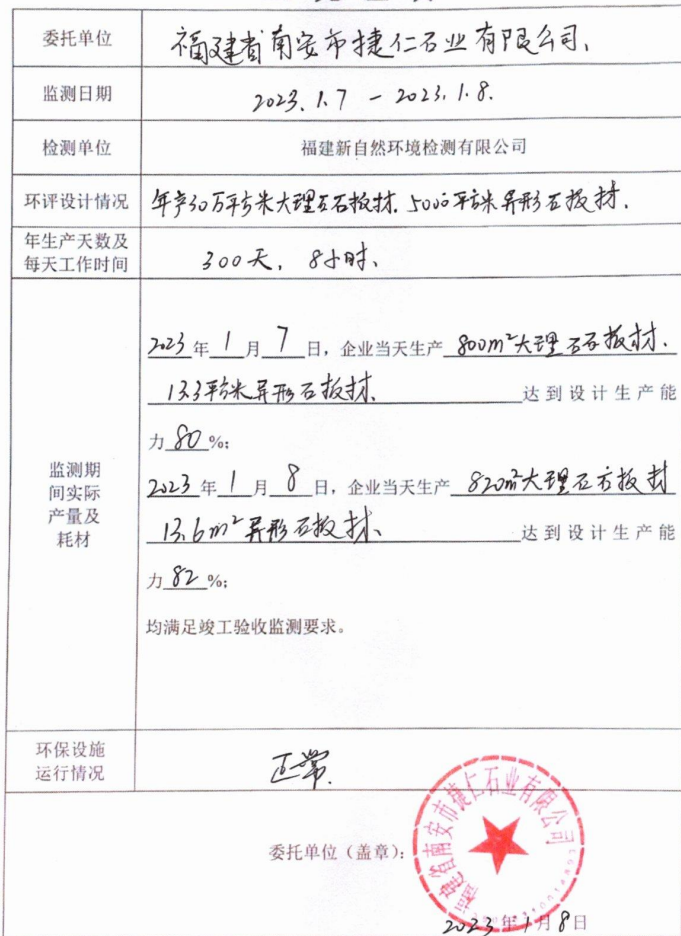 委托单位 福建省南安市捷仁石业有限公司、
监测日期 2023.1.7 - 2023.1.8.
检测单位 福建新自然环境检测有限公司
环评设计情况 年产30万平方米大理石石板材.5000平方米异形石板材.
年生产天数及
每天工作时间
300天,8小时、
监测期
间实际
产量及
耗材
2023年1月7日,企业当天生产 800m²大理石石板材.
13.3平方米异形石板材. 达到设计生产能
力80%;
2023年1月8日,企业当天生产 820m²大理石石板材
13.6m²异形石板材、 达到设计生产能
力82%;
均满足竣工验收监测要求。
环保设施
运行情况
正常.
委托单位(盖章):
福建省南安市捷仁石业有限公司
2023年1月8日